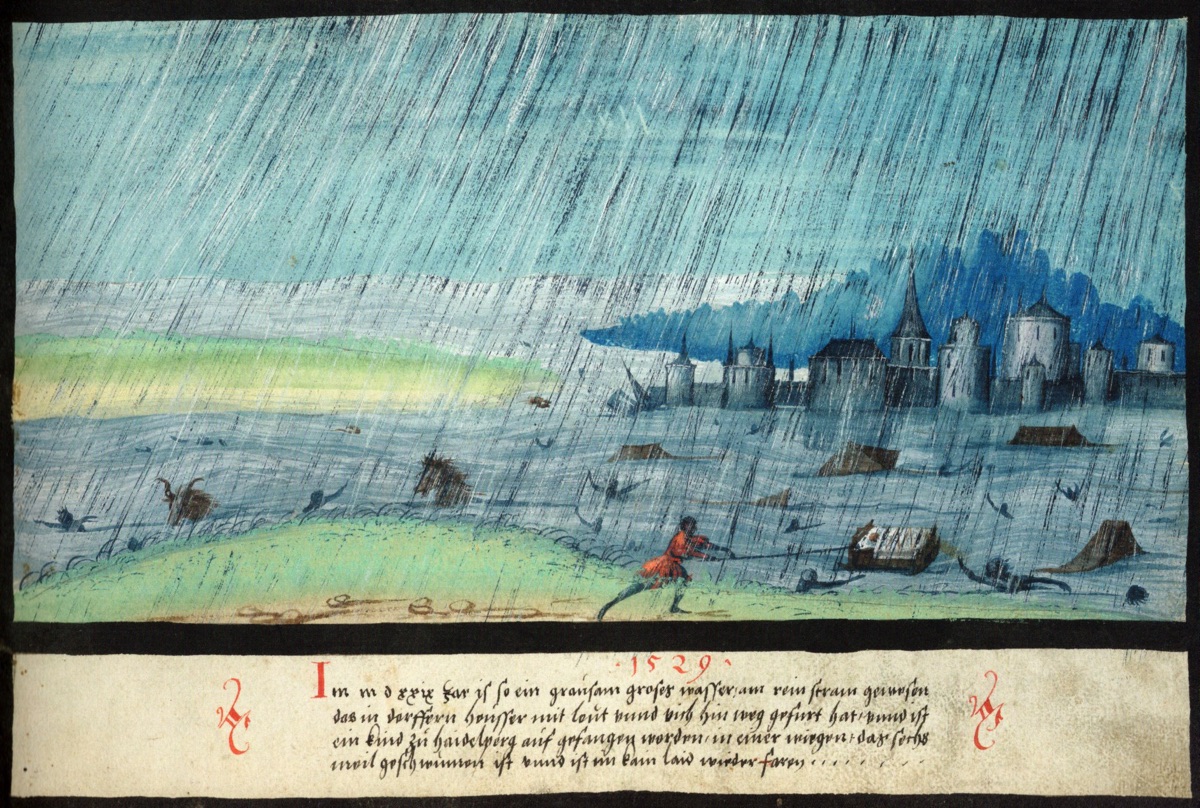 · 1529 ·
Im m d xxix Jar is so ein grausam groses wasser, am rein stram gewesen
das in dorffern heusser mit leut vnnd vich hin weg gefürt hat, vnnd ist
ein kind zu haidelperg auf gefangen worden, in einer wiegen, das sechs
meil geschwumen ist vnnd ist im kain laid wieder faren · · · · · · ·